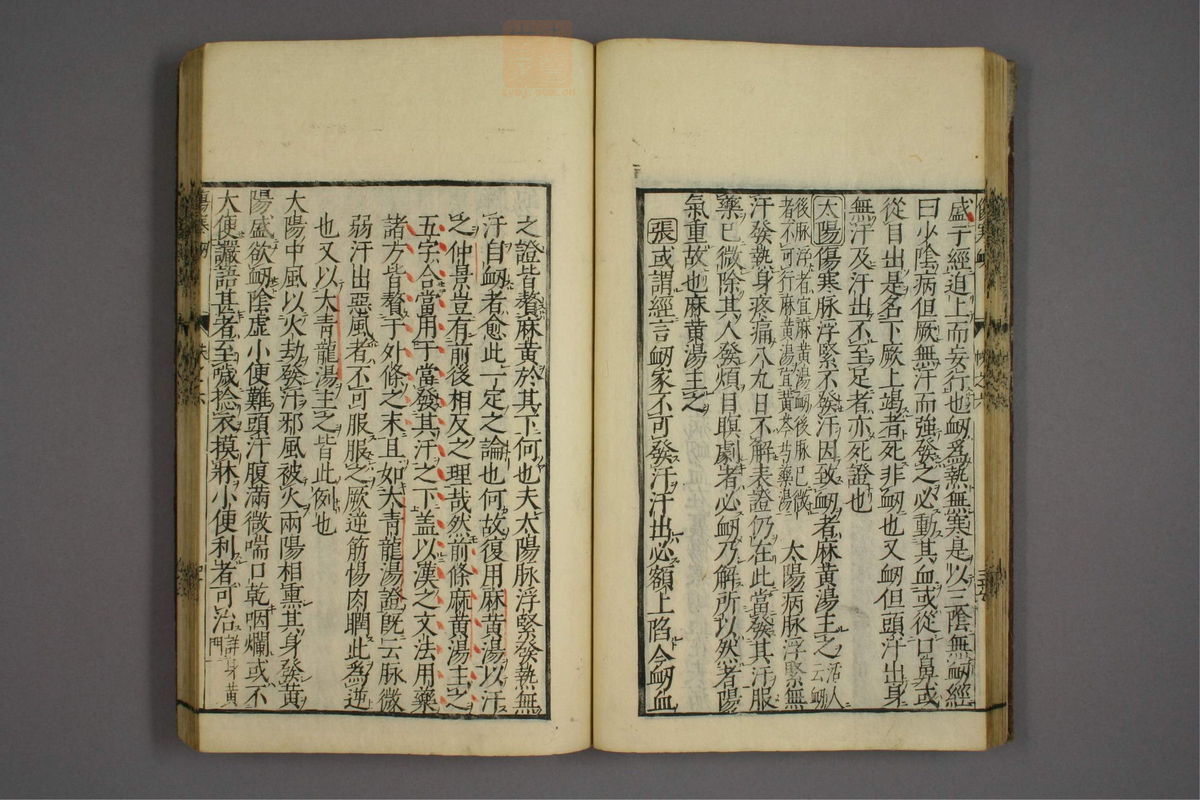 盛于經道上而妄行也衂爲熱無寒是以三陰無衂經
曰少陰病但厥無汗而強發之必動其血或從口鼻或
從目出是名下厥上竭者死非衂也又衂但頭汗出身
無汗及汗出不至足者亦死證也
太陽傷寒脉浮緊不發汗因致衂者麻黄湯主之活人云衂
後脉浮者宜麻黄湯衂後脉已微
者不可行麻黄湯宜黄芩芍藥湯
太陽病脉浮緊無
汗發熱身疼痛八九日不解表證仍在此當發其汗服
藥已微除其人發煩目瞑劇者必衂乃解所以然者陽
氣重故也麻黄湯主之
張或謂經言衂家不可發汗汗出必額上陷今衂血
之證皆贅麻黄於其下何也夫太陽脉浮緊發熱無
汗自衂者愈此一定之論也何故復用麻黄湯以汗
之仲景豈有前後相反之理哉然前條麻黄湯主之
五字合當用于當發其汗之下盖以漢之文法用藥
諸方皆贅于外條之末且如大青龍湯證既云脉微
弱汗出惡風者不可服服之厥逆筋惕肉瞤此爲逆
也又以大青龍湯主之皆此例也
太陽中風以火劫發汗邪風被火兩陽相熏其身發黄
陽盛欲衂陰虚小便難頭汗腹滿微喘口乾咽爛或不
大便讝語甚者至噦捻衣摸牀小便利者可治詳身黄門